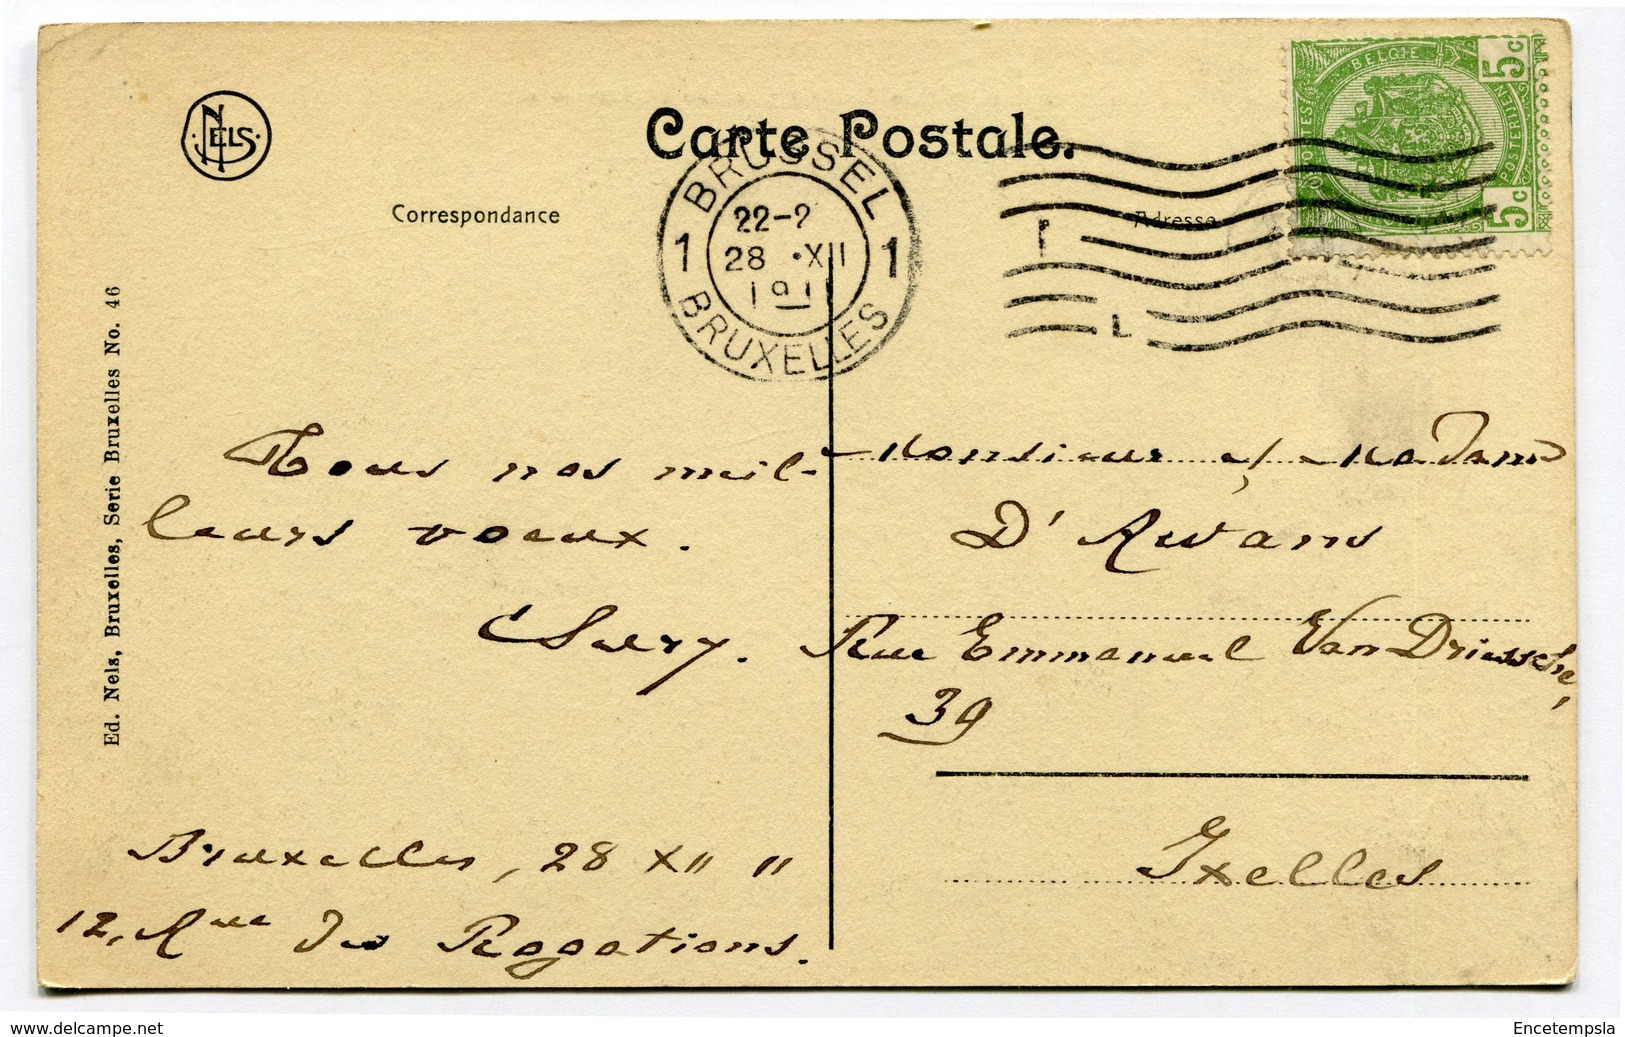 NELS
Carte Postale.
Correspondance
Adresse
BRUSSEL
22-2
1 28 XII 1
1911
BRUXELLES
BELGIE
5c
5c
POSTERIJEN
Ed. Nels, Bruxelles, Serie Bruxelles No. 46
Tous nos meil-
leurs voeux.
Bruxelles, 28 XII 11
12, Rue des Rogations.
Monsieur et Madame
Rue Emmanuel Van Driessche,
39
Ixelles
www.delcampe.net
Encetempsla